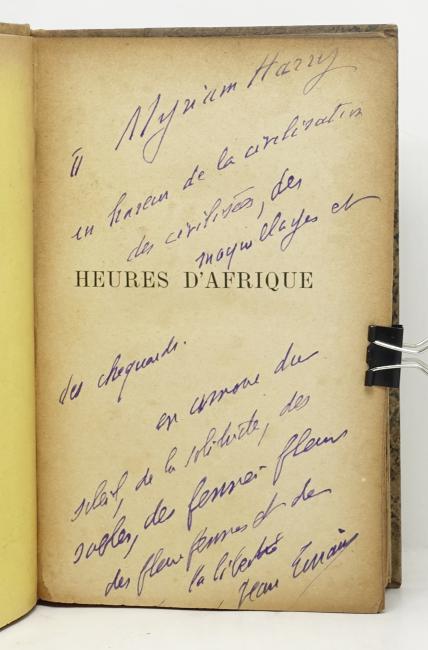 à Myriam Harry
en haine de la civilisation
des civilisés, des
maquillages et
HEURES D'AFRIQUE
des chiqués.
en amour du
soleil, de la solitude, des
sables, des femmes fleurs
des fleurs femmes et de
la liberté
Jean Lorrain